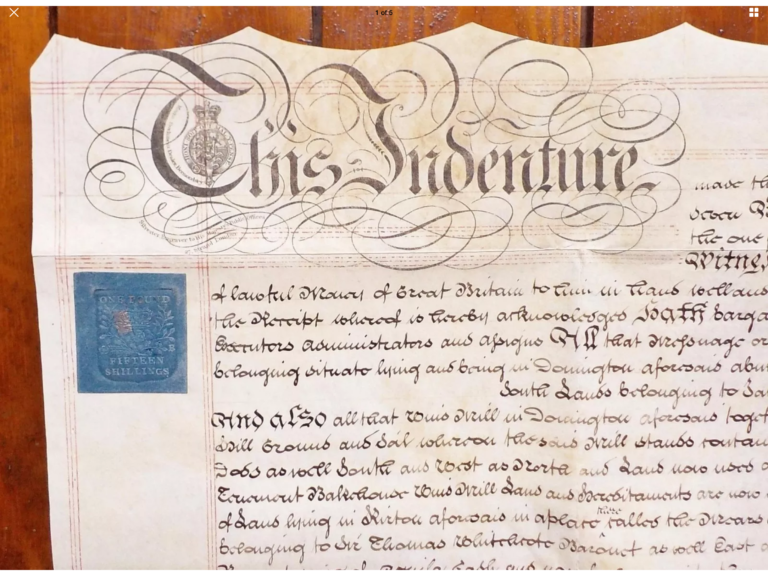 1 of 5
This Indenture
made th
the one
Witnes
ONE POUND
FIFTEEN
SHILLINGS
of lawful Money of Great Britain to him in hand well and
the Receipt whereof is hereby acknowledged Hath barga
Executors Administrators and Assigns All that Messuage or
belonging situate lying and being in Donington aforesaid abut
South Lands belonging to
And also all that Wind Mill in Donington aforesaid toget
Mill Ground and Soil whereon the said Mill stands contain
as well South and West as North and Land now used
Tenement Bakehouse Wind Mill Land and Hereditaments are now
of Land lying in Kirton aforesaid in a place there called the
belonging to Sir Thomas Whitchcote Baronet as well East